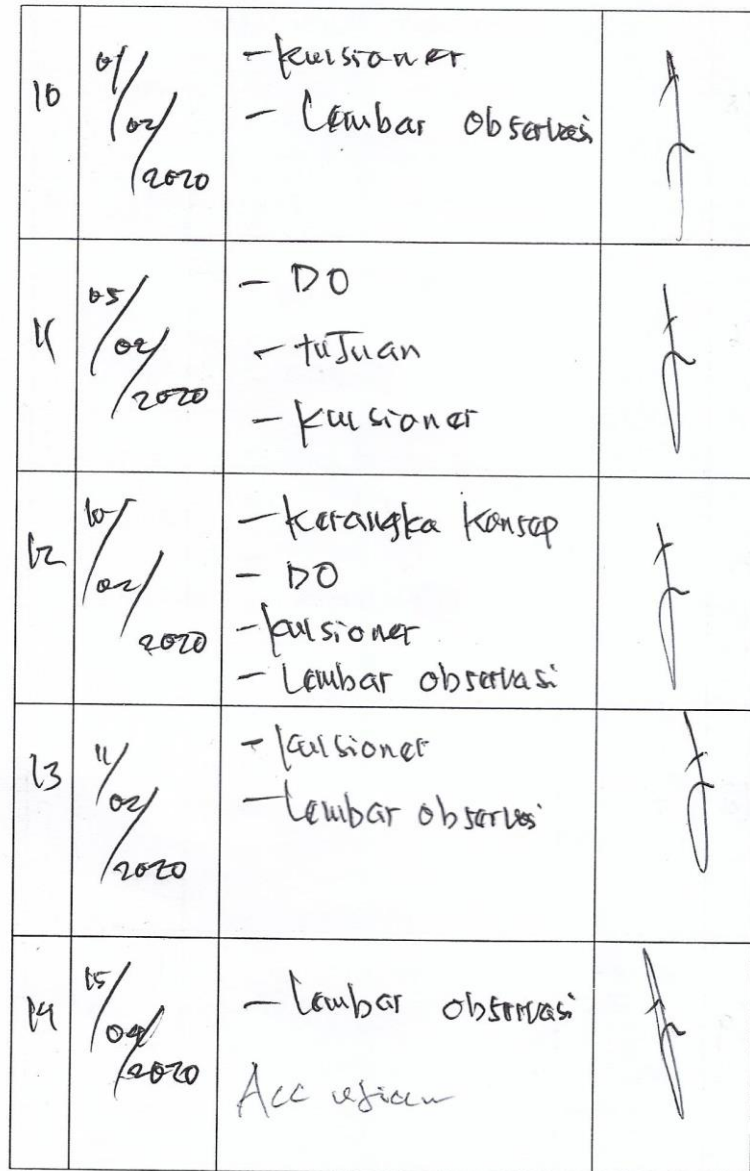 10
/02/2020
- kuisioner
- Lembar observasi
11
05/02/2020
- DO
- tuJuan
- kuisioner
12
10/02/2020
- Kerangka Konsep
- DO
- kuisioner
- Lembar observasi
13
11/02/2020
- kuisioner
- Lembar observasi
14
15/ /2020
- Lembar observasi
Acc ujian